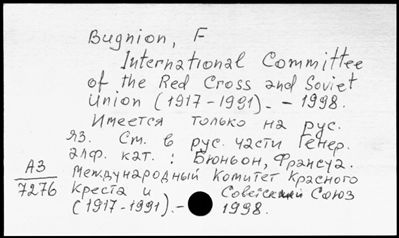 Bugnion, F
International Committee
of the Red Cross and Soviet
Union (1917-1991). - 1998.
Имеется только на рус.
яз. См. в рус. части Генер.
алф. кат. : Бюньон, Франсуа.
Международный Комитет Красного
Креста и Советский Союз
(1917-1991).- 1998.
А3
7276